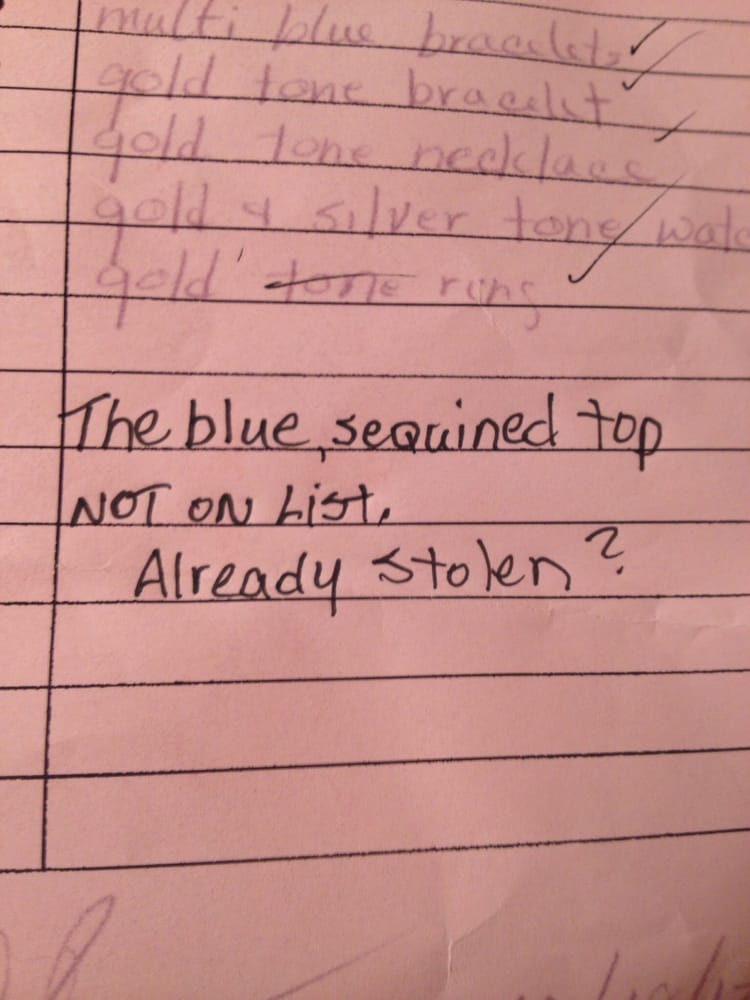 multi blue bracelets
gold tone bracelet
gold tone necklace
gold & silver tone
gold tone ring
The blue, sequined top
NOT ON List.
Already stolen?